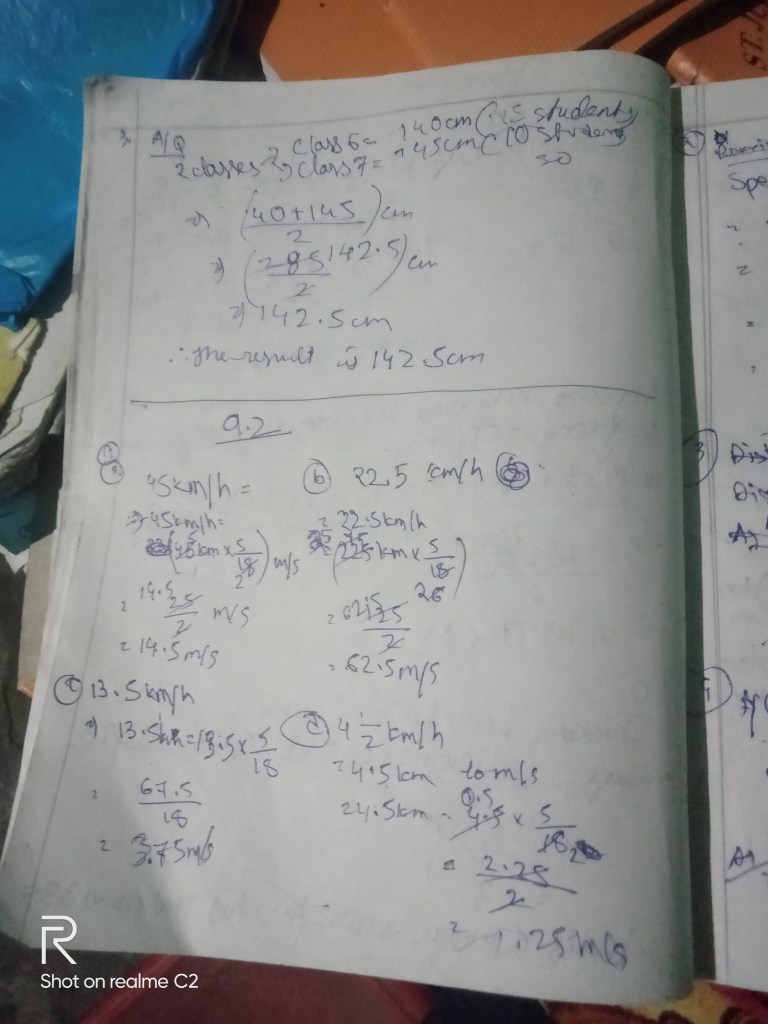 3. A/Q
2 classes → class 6 = 140cm (15 students
→ class 7 = 145cm (10 students
so
⇒ (140+145/2) cm
⇒ (285/2 142.5) cm
⇒ 142.5 cm
∴ The result is 142.5cm
9.2
45km/h =
⇒ 45km/h =
km × 5/18) m/s
= 25/2 m/s
= 14.5 m/s
(b) 22.5 km/h
= 22.5km/h
km × 5/18)
= 62.5m/s
(c) 13.5km/h
⇒ 13.5 = 13.5 × 5/18
= 67.5/18
= 3.75m/s
(d) 4 1/2 km/h
= 4.5km to m/s
24.5km = 4.5 × 5/18
= 2.25/2
= 1.25 m/s
Spe
3
Dist
Dis
4
R
Shot on realme C2
ST.